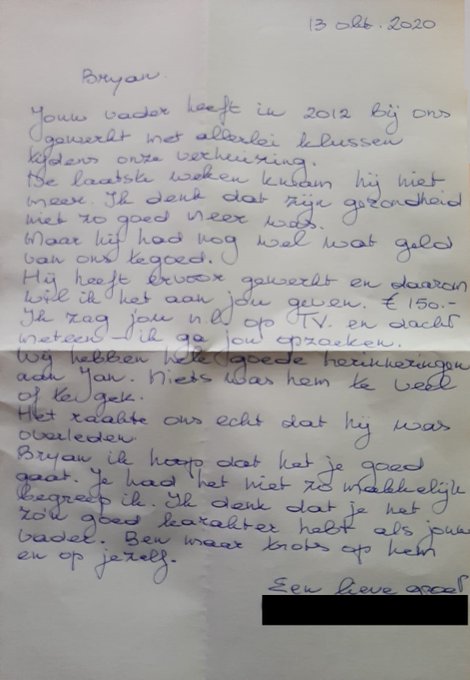 13 okt. 2020
Bryan.
Jouw vader heeft in 2012 bij ons
gewerkt met allerlei klussen
tijdens onze verhuizing.
De laatste weken kwam hij niet
meer. Ik denk dat zijn gezondheid
niet zo goed meer was.
Maar hij had nog wel wat geld
van ons tegoed.
Hij heeft ervoor gewerkt en daarom
wil ik het aan jou geven. € 150.-
Ik zag jou n.l. op TV. en dacht
meteen - ik ga jou opzoeken.
Wij hebben hele goede herinneringen
aan Jan. Niets was hem te veel
of te gek.
Het raakte ons echt dat hij was
overleden.
Bryan ik hoop dat het je goed
gaat. Je had het niet zo makkelijk
begreep ik. Ik denk dat je net
zo'n goed karakter hebt als jouw
vader. Ben maar trots op hem
en op jezelf.
Een lieve groet